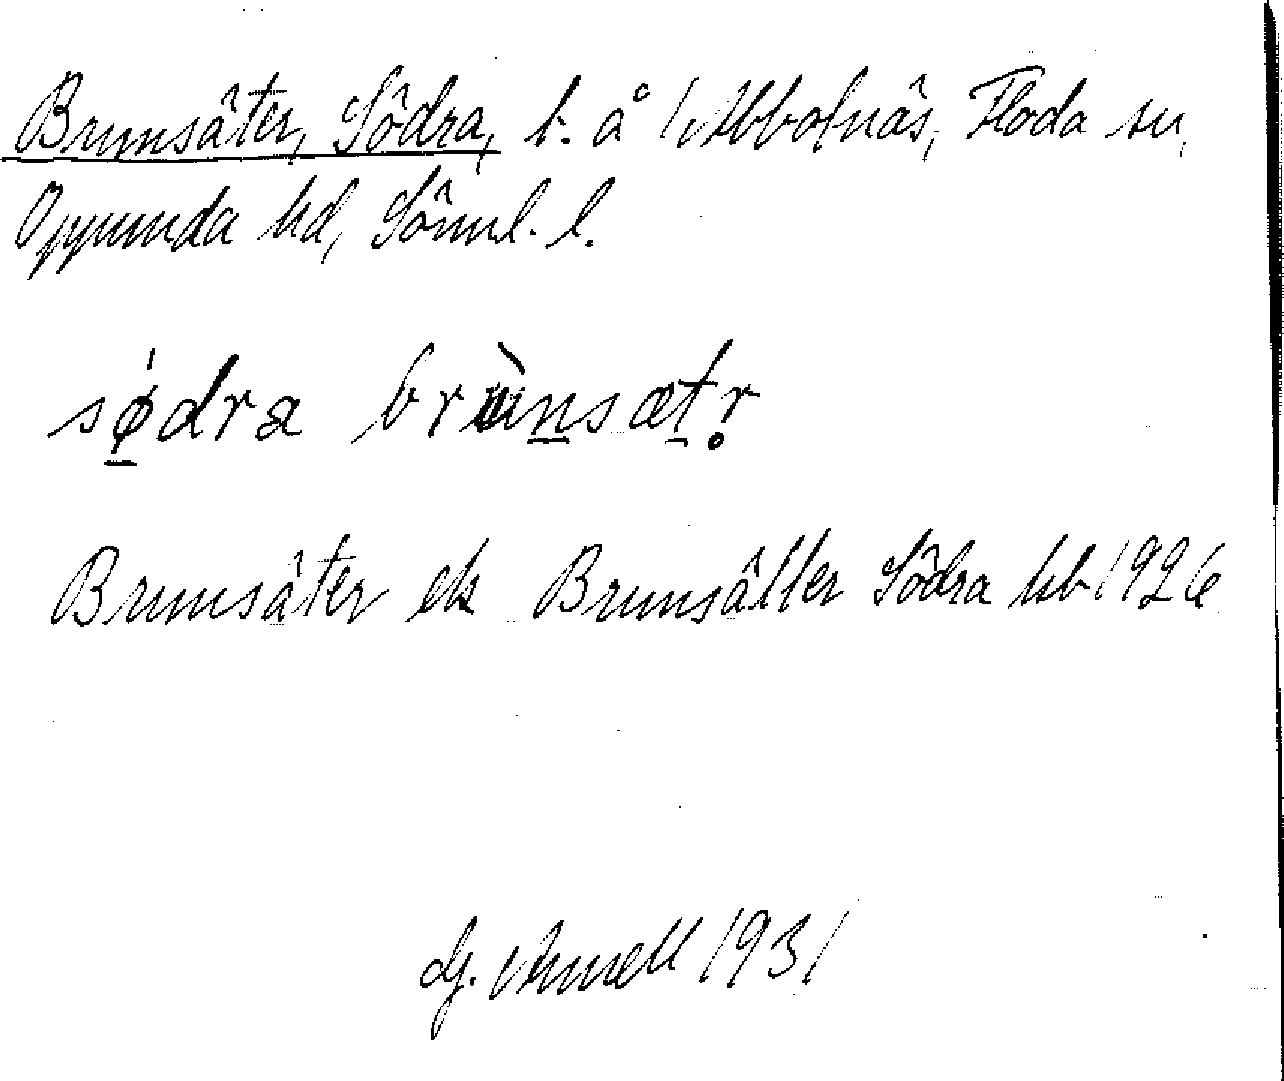 Brunsäter, Södra, t. å Abbotnäs, Floda sn,
Oppunda hd, Sörml. l.
sǿ̱dra brùṉsæṯr̥
Brunsäter ek Brunsätter Södra hb 1926
G. Arnell 1931